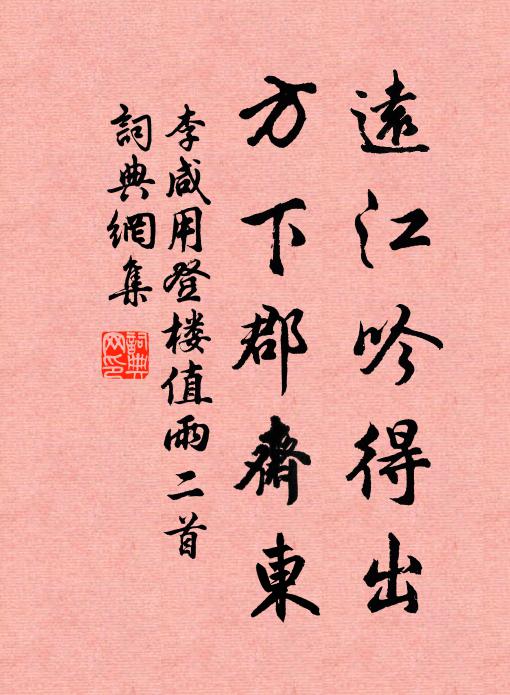 遠江吟得出
方下郡齋東
李咸用登樓值雨二首
詞典網集
詞典網印